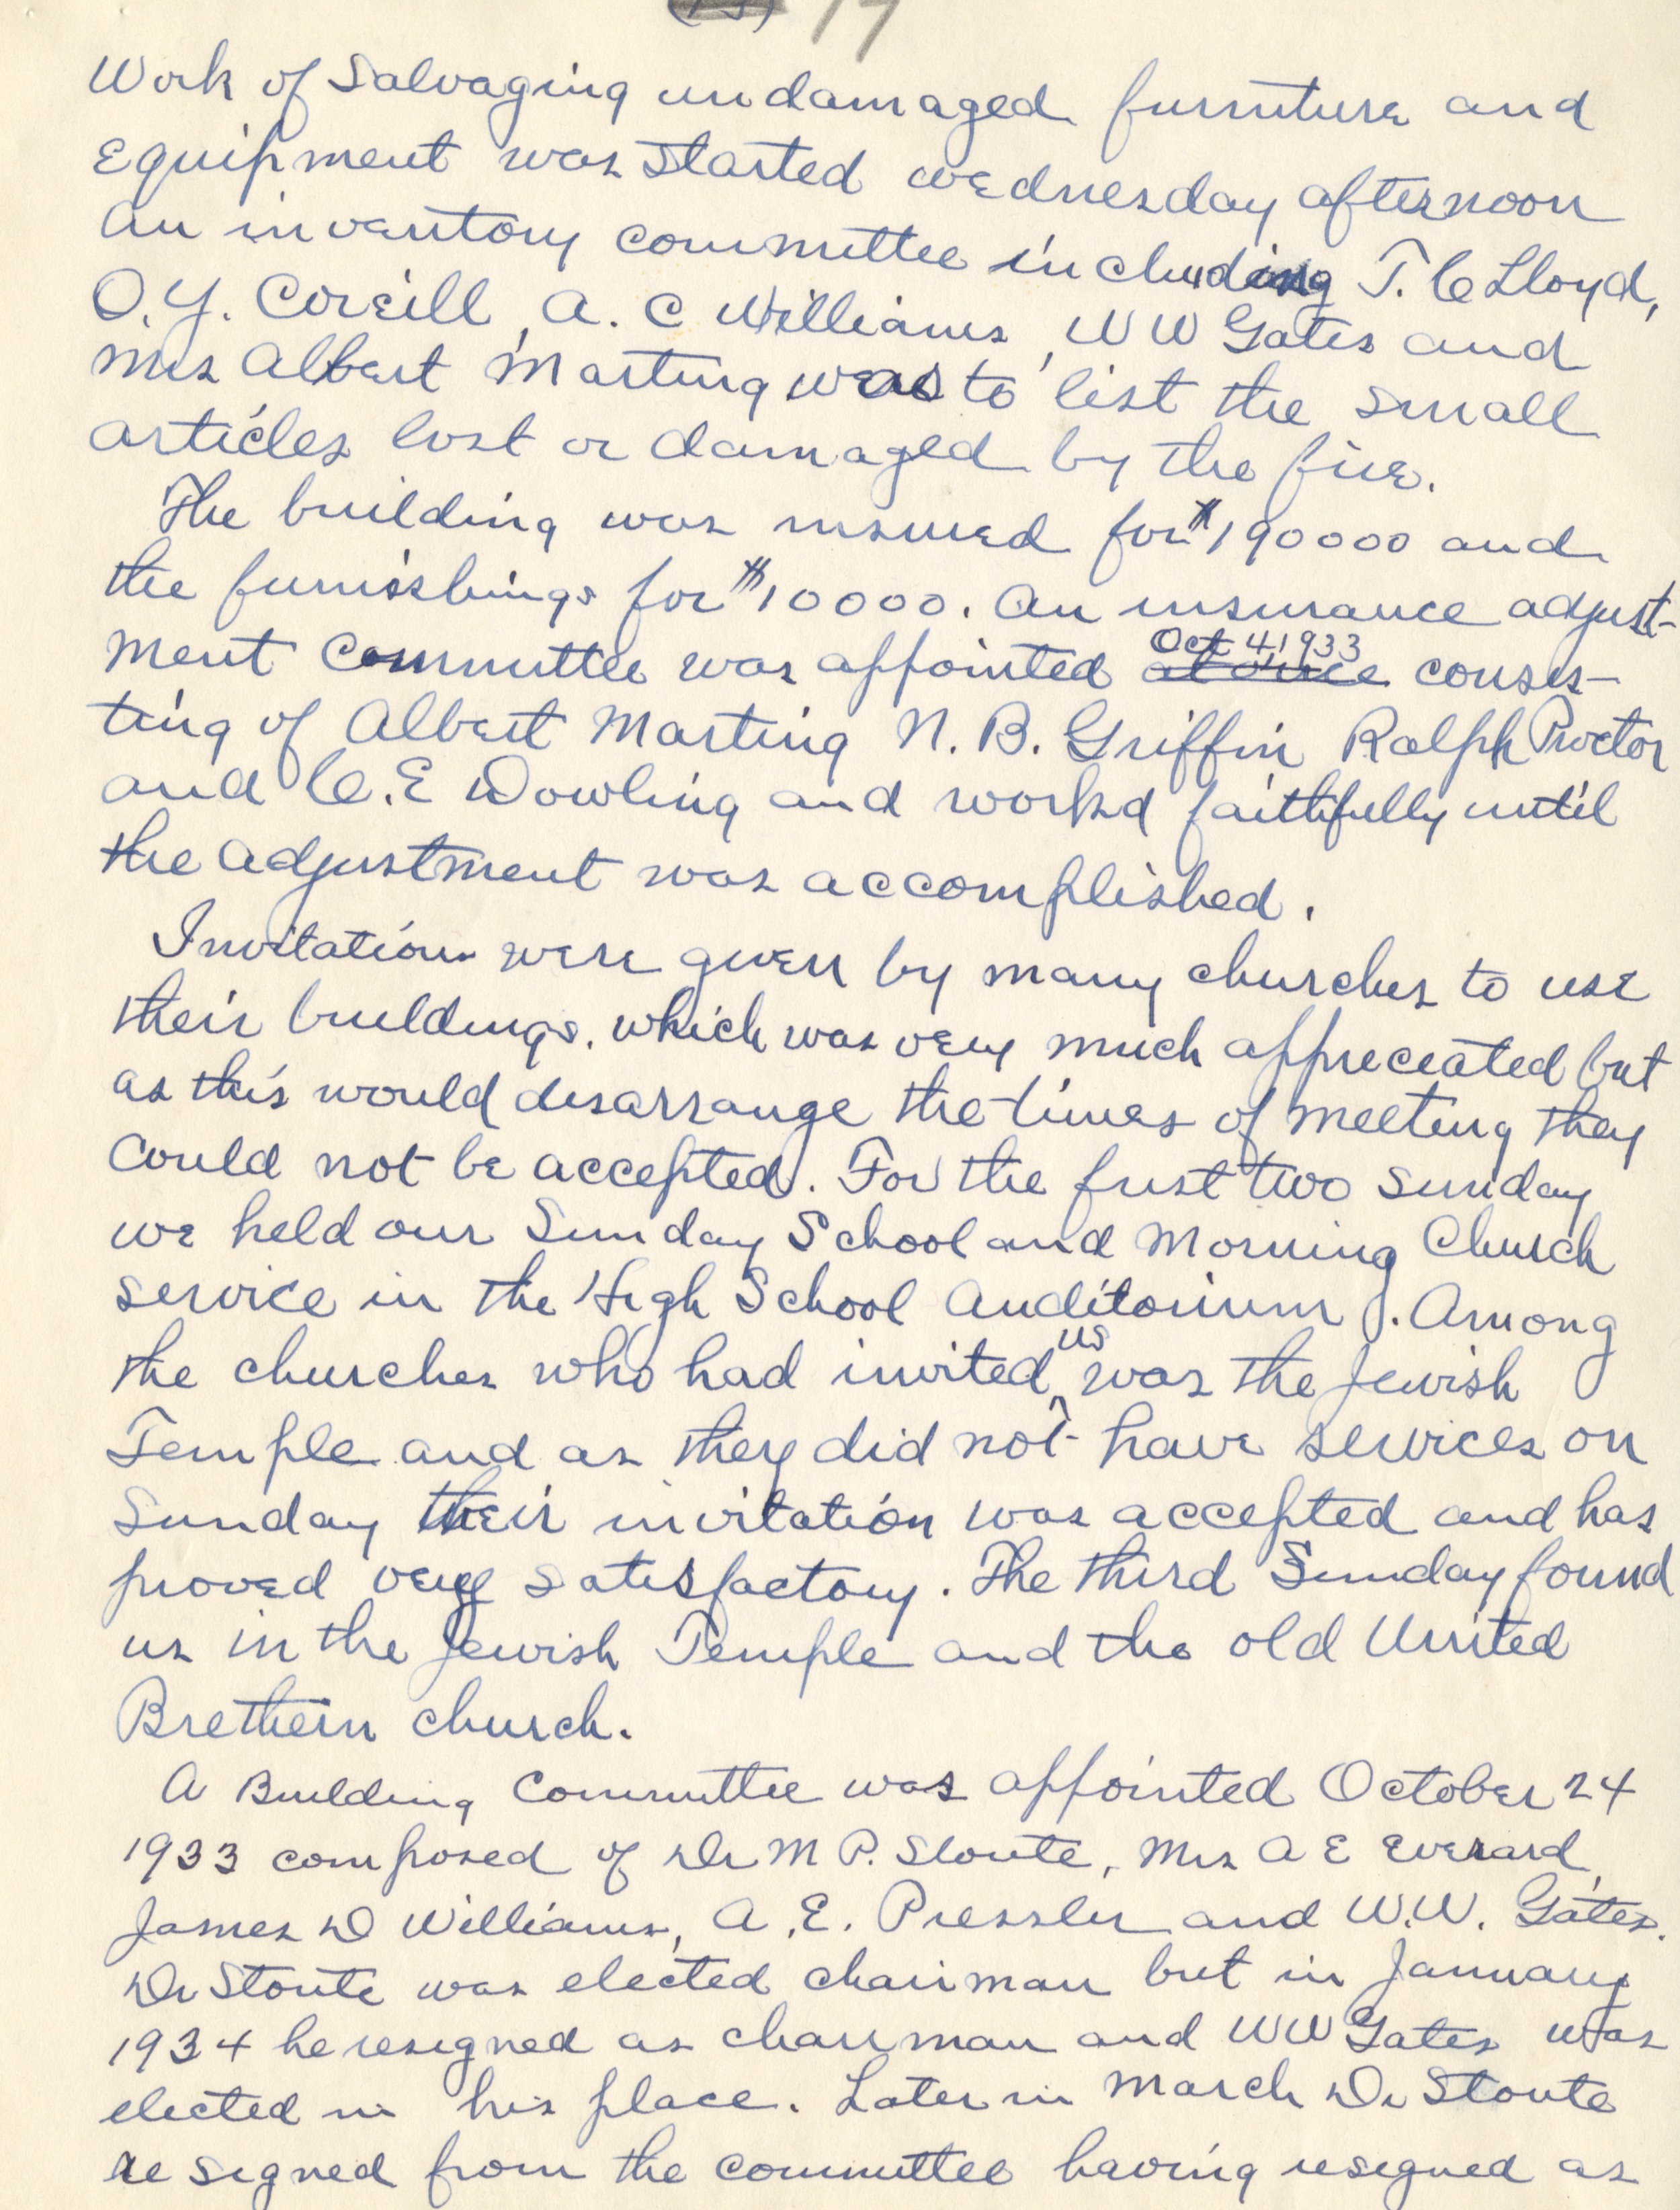 17
Work of Salvaging undamaged furniture and
Equipment was Started wednesday afternoon
An inventory committee including T. C Lloyd,
O. Y. Coveill, A. C Williams, W W Gates and
Mrs Albert Marting was to list the small
articles lost or damaged by the fire.
The building was insured for $190000 and
the furnishings for $10000. An insurance adjust-
ment Committee was appointed Oct 4, 1933 at once consis-
ting of Albert Marting N. B. Griffin Ralph Proctor
and C. E Dowling and workd faithfully until
the adjustment was accomplished.
Invitations were given by many churches to use
their buildings. which was very much appreceated but
as this would disarrange the times of meeting they
could not be accepted. For the first two Sunday
we held our Sunday School and Morning Church
service in the High School Auditorium. Among
the churches who had invited us was the Jewish
Temple and as they did not have services on
Sunday their invitation was accepted and has
proved very satisfactory. The third Sunday found
us in the Jewish Temple and the old United
Brethern church.
A Building Committee was appointed October 24
1933 composed of Dr M P. Stoute, Mrs A E Everard,
James D Williams, A. E. Pressler and W. W. Gates.
Dr Stoute was elected chairman but in January
1934 he resigned as chairman and WW Gates was
elected in his place. Later in March Dr Stoute
resigned from the committee having resigned as